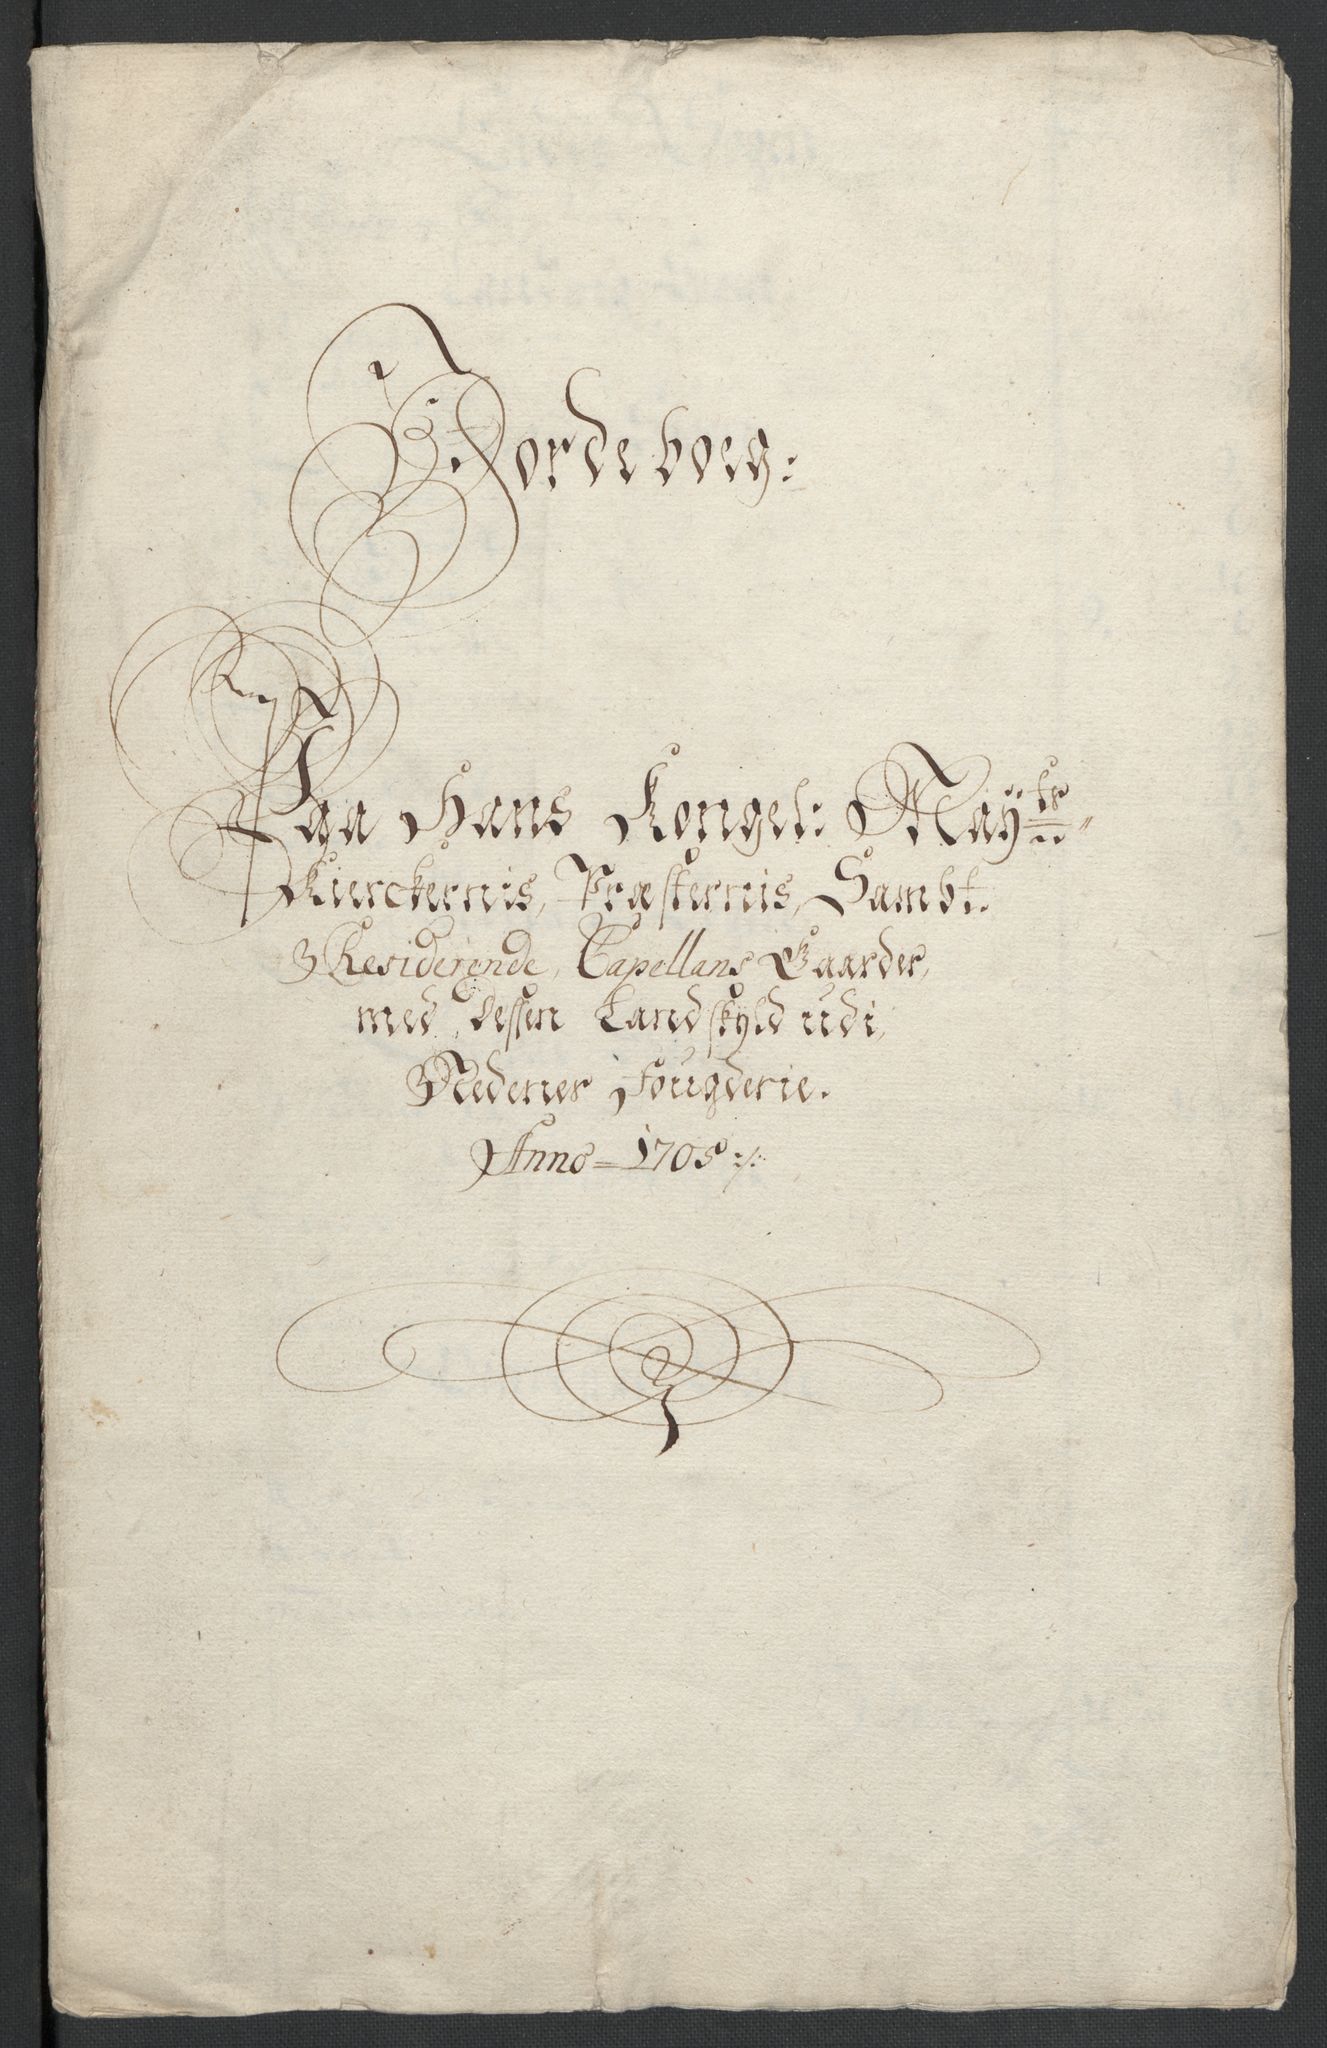 Jordeboeg:
Paa Hans Kongel: Maÿts
Kierckernis, Præsternis, Sambt.
Residerende, Capellans Gaarder,
med dessen Landskÿld udi,
Nedenes Fougderie.
Anno = 1705 :/: